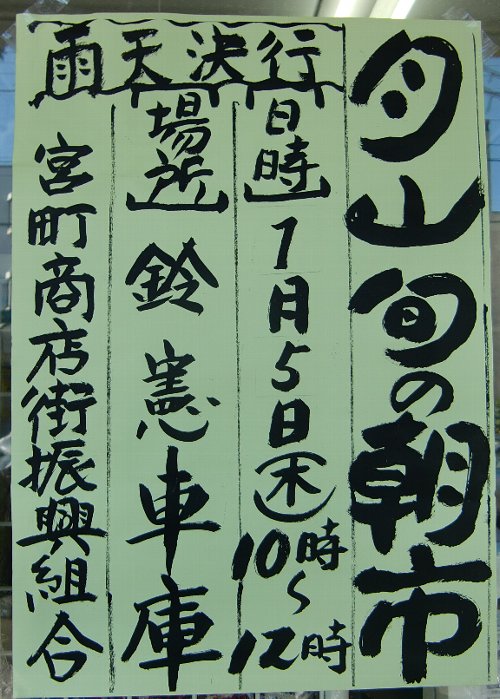 月山旬の朝市
雨天決行
[日時]
1月5日(木)
10時~
12時
[場所]
鈴憲車庫
宮町商店街振興組合